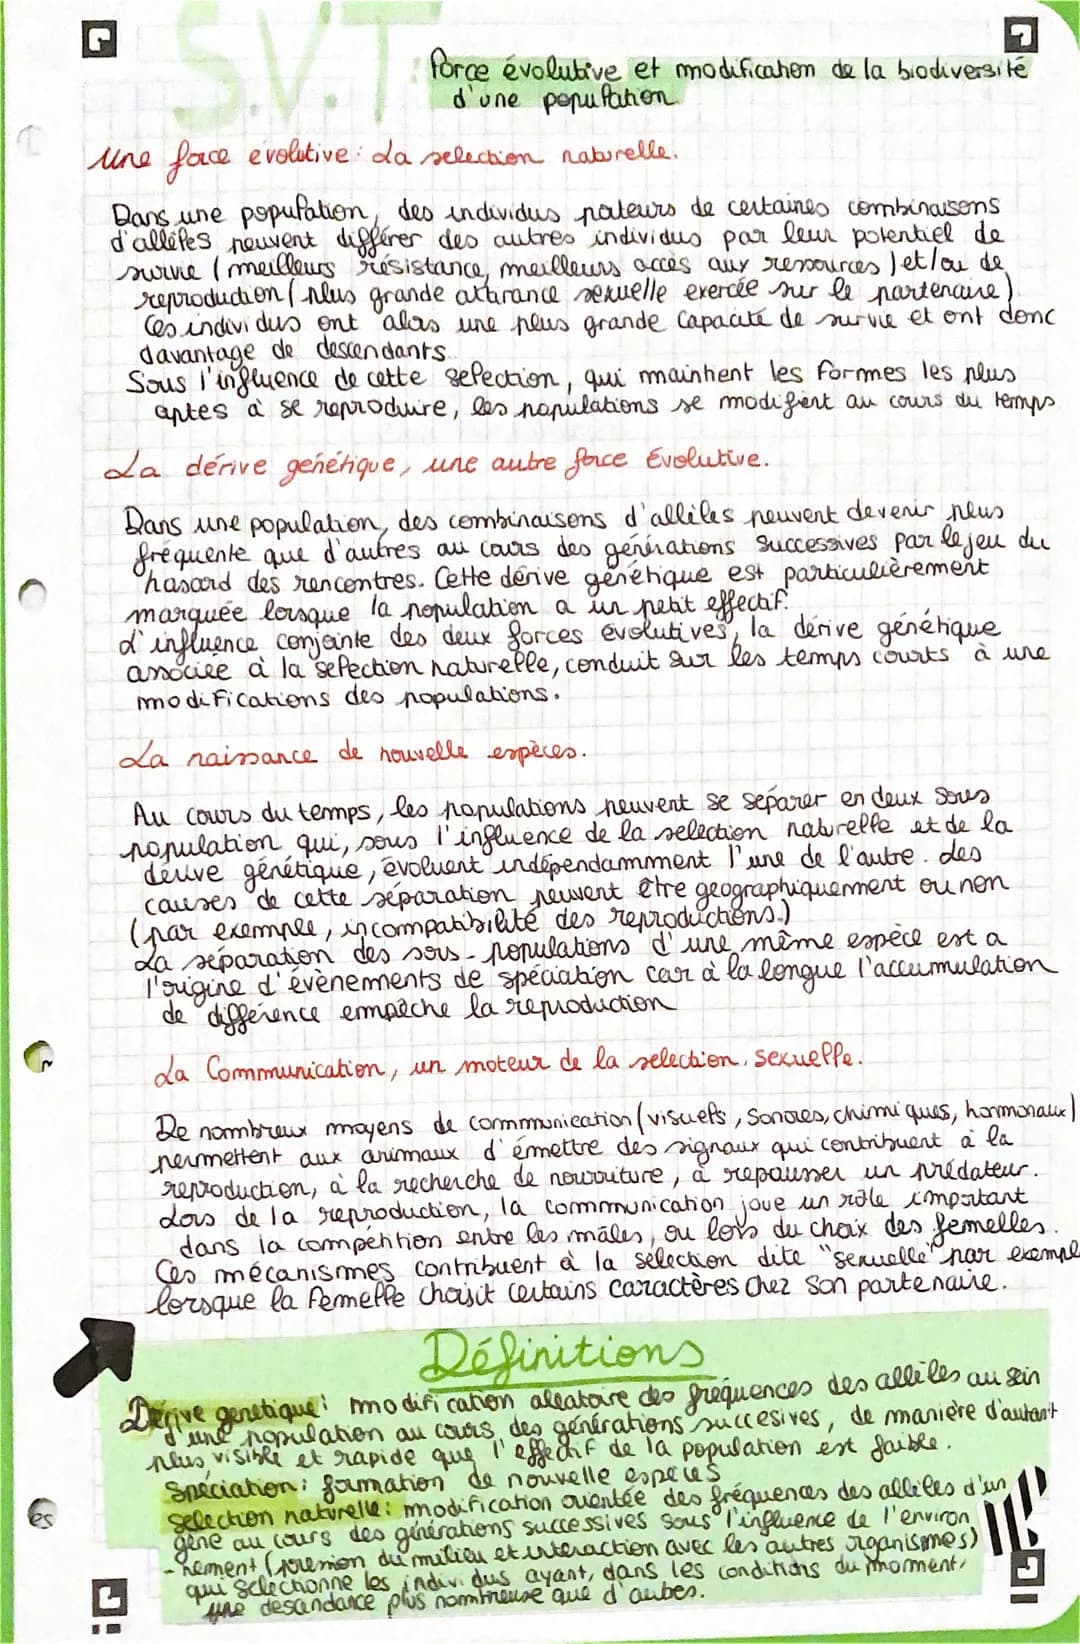 S.V.T:
Force évolutive et modification de la biodiversité
d'une population
Une force évolutive: La selection naturelle.
Dans une population, des individus poteurs de certaines combinaisons
d'allèles peuvent différer des autres individus par leur potentiel de
survie (meilleurs résistance, meilleurs accès aux ressources) et/ou de
reproduction (plus grande attirance sexuelle exercée sur le partenaire).
Ces individus ont alors une plus grande capacité de survie et ont donc
davantage de descendants.
Sous l'influence de cette selection, qui maintient les formes les plus
aptes à se reproduire, les populations se modifient au cours du temps
La dérive génétique, une autre force évolutive.
Dans une population, des combinaisons d'allèles peuvent devenir plus
fréquente que d'autres au cours des générations successives par le jeu du
hasard des rencontres. Cette dérive génétique est particulièrement
marquée lorsque la population a un petit effectif.
L'influence conjointe des deux forces évolutives, la dérive génétique
associée à la selection naturelle, conduit sur les temps courts à une
modifications des populations.
La naissance de nouvelle espèces.
Au cours du temps, les populations peuvent se séparer en deux sous
population qui, sous l'influence de la selection naturelle et de la
dérive génétique, évoluent indépendammment l'une de l'autre. Les
causes de cette séparation peuvent être geographiquement ou non
(par exemple, incompatibilité des reproductions.)
La séparation des sous-populations d'une même espèce est a
l'origine d'évènements de spéciation car à la longue l'accumulation
de différence empêche la reproduction
La Communication, un moteur de la selection sexuelle.
De nombreux moyens de communication (visuels, sonores, chimiques, hormonaux)
permettent aux animaux d'émettre des signaux qui contribuent à la
reproduction, à la recherche de nourriture, à repousser un prédateur.
Lors de la reproduction, la communication joue un rôle important
dans la compétition entre les mâles, ou lors du choix des femelles.
Ces mécanismes contribuent à la sélection dite "sexuelle" par exemple
lorsque la femelle choisit certains caractères chez son partenaire.
Définitions
Dérive genetique: modification aléatoire des fréquences des allèles au sein
d'une population au cours des générations succesives, de manière d'autant
plus visible et rapide que l'effectif de la population est faible.
Spéciation: formation de nouvelle espèces
Selection naturelle: modification orientée des fréquences des allèles d'un
gène au cours des générations successives sous l'influence de l'environ
-nement (pression du milieu et interaction avec les autres organismes)
qui sélectionne les individus ayant, dans les conditions du moment,
une descendance plus nombreuse que d'autres.
es